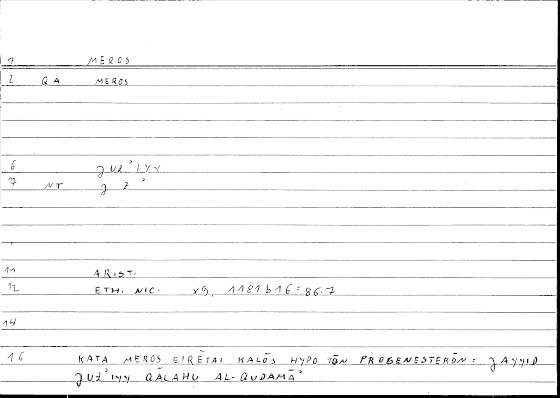 1 MEROS
2 QA MEROS
6 JUZʾIYY
7 NT J Z ʾ
11 ARIST.
12 ETH. NIC. X9, 1181b16 = 86.7
14
16 KATA MEROS EIRĒTAI KALŌS HYPO TŌN PROGENESTERŌN: JAYYID
JUZʾIYY QĀLAHU AL-QUDAMĀʾ